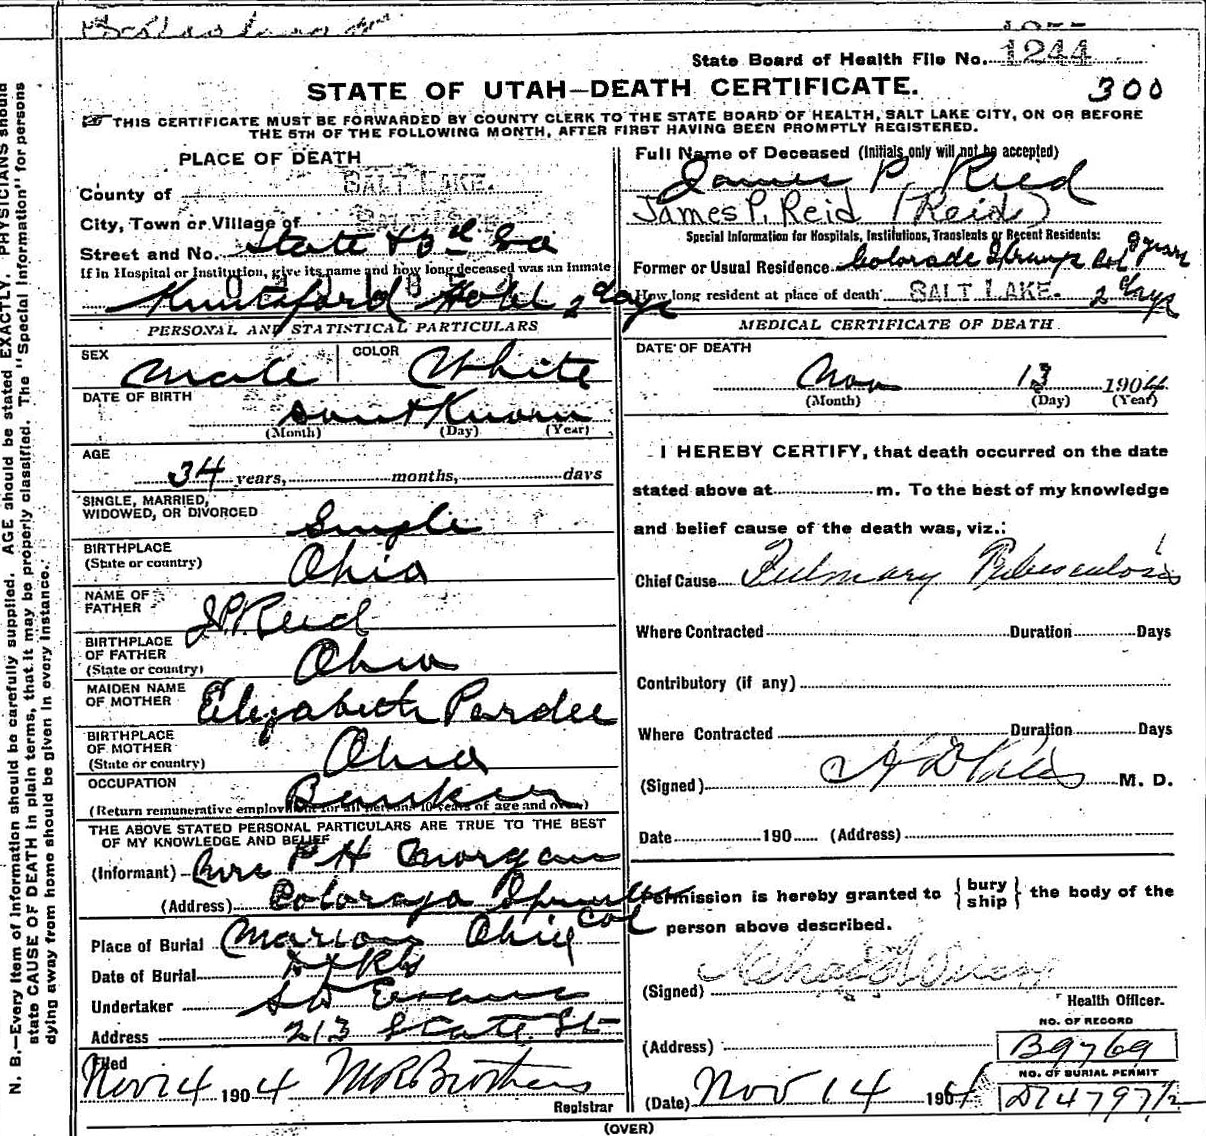 State Board of Health File No. 1244
300
STATE OF UTAH—DEATH CERTIFICATE.
THIS CERTIFICATE MUST BE FORWARDED BY COUNTY CLERK TO THE STATE BOARD OF HEALTH, SALT LAKE CITY, ON OR BEFORE
THE 5TH OF THE FOLLOWING MONTH, AFTER FIRST HAVING BEEN PROMPTLY REGISTERED.
PLACE OF DEATH
County of SALT LAKE.
City, Town or Village of
Street and No. State & 3d So
If in Hospital or Institution, give its name and how long deceased was an Inmate
Knutsford Hotel 2 days
PERSONAL AND STATISTICAL PARTICULARS
SEX Male COLOR White
DATE OF BIRTH
dont Known
(Month) (Day) (Year)
AGE
34 years, months, days
SINGLE, MARRIED,
WIDOWED, OR DIVORCED Single
BIRTHPLACE
(State or country) Ohio
NAME OF
FATHER J.P. Reid
BIRTHPLACE
OF FATHER
(State or country) Ohio
MAIDEN NAME
OF MOTHER Elizabeth Pardee
BIRTHPLACE
OF MOTHER
(State or country) Ohio
OCCUPATION Banker
(Return remunerative employment for all persons 10 years of age and over)
THE ABOVE STATED PERSONAL PARTICULARS ARE TRUE TO THE BEST
OF MY KNOWLEDGE AND BELIEF
(Informant) Mrs P H Morgan
(Address) Colorado Springs Col
Place of Burial Marion Ohio
Date of Burial
Undertaker S D Evans
Address 213 State St
Filed
Nov 14 1904 Brothers
Registrar
Full Name of Deceased (Initials only will not be accepted)
James P. Reed
James P. Reid (Reid)
Special Information for Hospitals, Institutions, Transients or Recent Residents:
Former or Usual Residence Colorado Springs Col 8 years
How long resident at place of death SALT LAKE. 2 days
MEDICAL CERTIFICATE OF DEATH
DATE OF DEATH
Nov 13 1904
(Month) (Day) (Year)
I HEREBY CERTIFY, that death occurred on the date
stated above at m. To the best of my knowledge
and belief cause of the death was, viz.:
Chief Cause Pulmonary Tuberculosis
Where Contracted Duration Days
Contributory (if any)
Where Contracted Duration Days
(Signed) M. D.
Date 190 (Address)
Permission is hereby granted to {bury ship} the body of the
person above described.
(Signed)
Health Officer.
(Address)
NO. OF RECORD
B9769
NO. OF BURIAL PERMIT
D14797 1/2
(Date) Nov 14 1904
(OVER)
N. B.—Every item of information should be carefully supplied. AGE should be stated EXACTLY. PHYSICIANS should
state CAUSE OF DEATH in plain terms, that it may be properly classified. The "Special Information" for persons
dying away from home should be given in every instance.